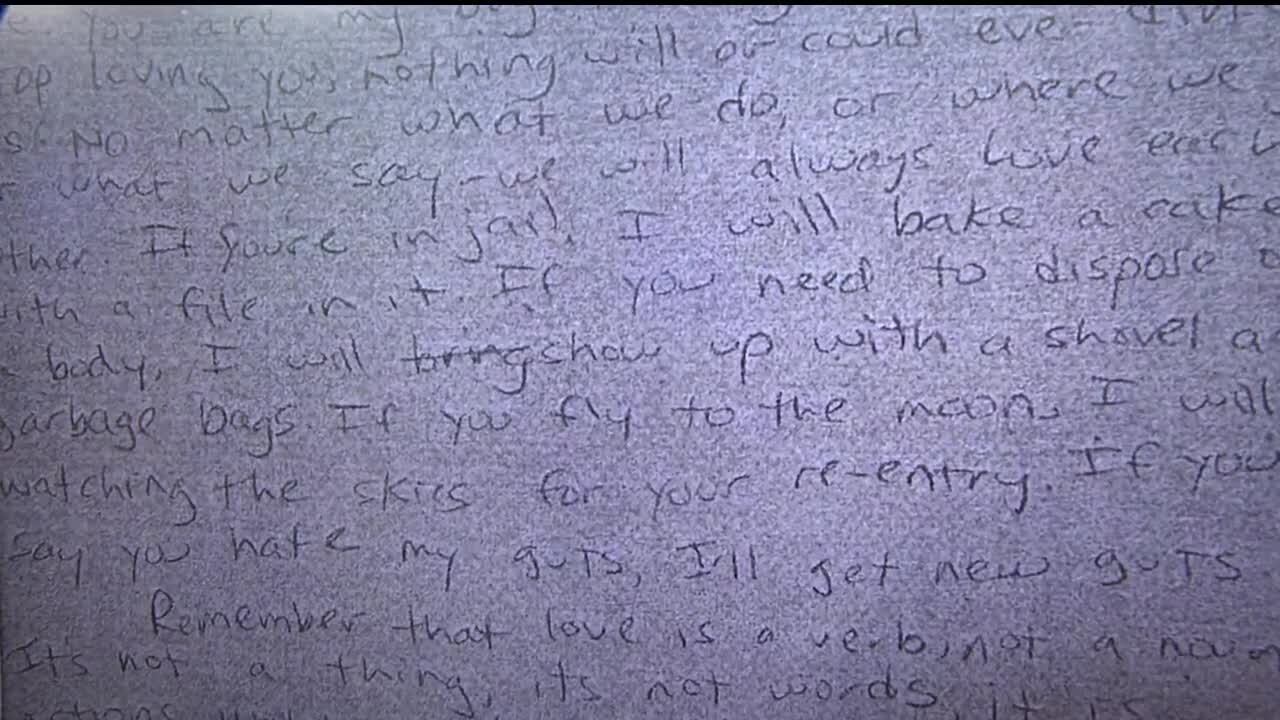 You are my
op loving you, nothing will or could ever
s. No matter what we do, or where we
what we say - we will always love each
ther. If you're in jail, I will bake a cake
ith a file in it. If you need to dispose o
a body, I will bring show up with a shovel a
garbage bags. If you fly to the moon, I will
watching the skies for your re-entry. If you
say you hate my guts, I'll get new guts
Remember that love is a verb, not a noun
It's not a thing, it's not words, it is